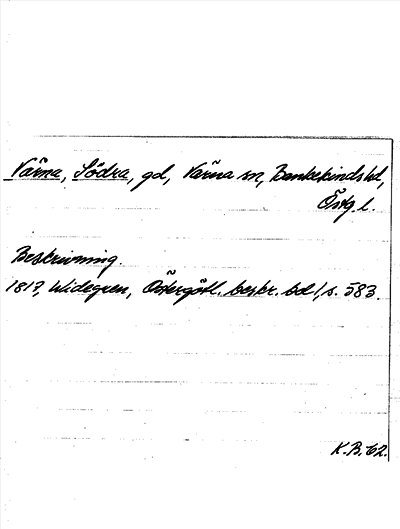 Värna, Södra, gd, Värna sn, Bankekinds hd,
Östg. l.
Beskrivning.
1817, Widegren, Östergötl. beskr. bd 1, s. 583.
K.B. 62.